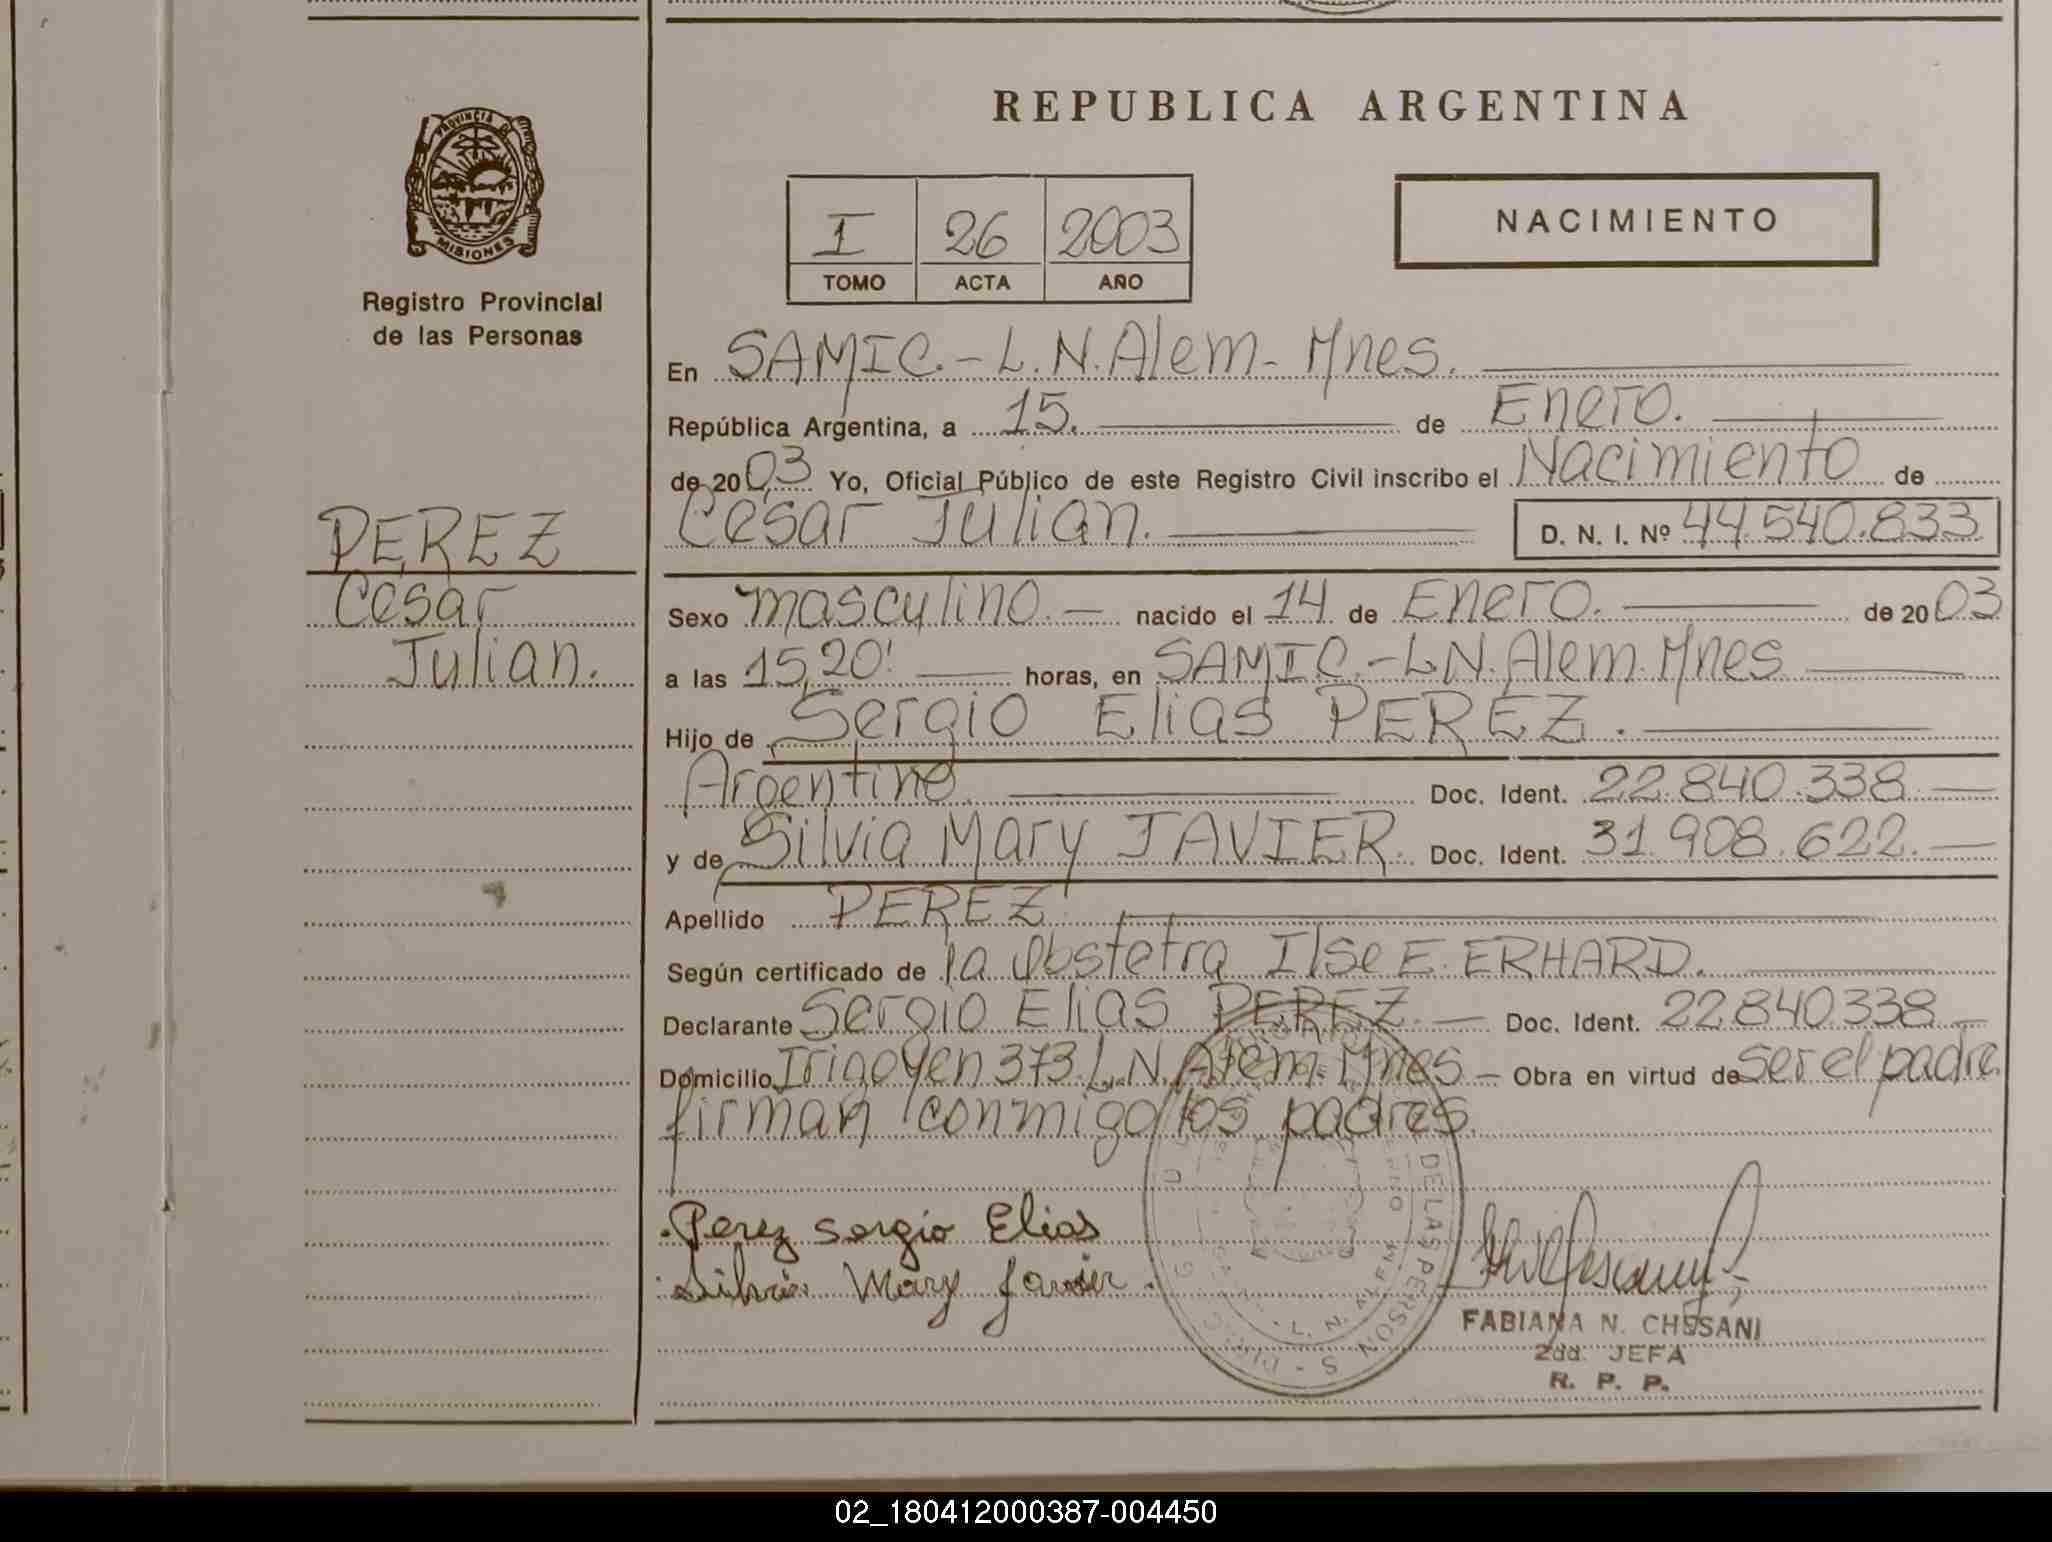 PROVINCIA DE
MISIONES
Registro Provincial
de las Personas
PEREZ
César
Julian.
REPUBLICA ARGENTINA
I 26 2003
TOMO ACTA AÑO
NACIMIENTO
En SAMIC.-L.N.Alem-Mnes.
República Argentina, a 15. de Enero.
de 2003 Yo, Oficial Público de este Registro Civil inscribo el Nacimiento de
César Julian. D. N. I. Nº 44.540.833
Sexo masculino.— nacido el 14 de Enero. de 2003
a las 15,20' horas, en SAMIC.-L.N.Alem.Mnes
Hijo de Sergio Elias PEREZ.
Argentino Doc. Ident. 22.840.338.—
y de Silvia Mary JAVIER. Doc. Ident. 31.908.622.—
Apellido PEREZ
Según certificado de la Obstetra Ilse E. ERHARD.
Declarante Sergio Elias PEREZ.— Doc. Ident. 22.840.338—
Domicilio Irigoyen 373.L.N.Alem.Mnes— Obra en virtud de ser el padre
firman conmigo los padres.
Perez Sergio Elias
Silvia Mary Javier.
DE LAS PERSON S
L. N.
FABIANA N. CHSSANI
2da. JEFA
R. P. P.
02_180412000387-004450